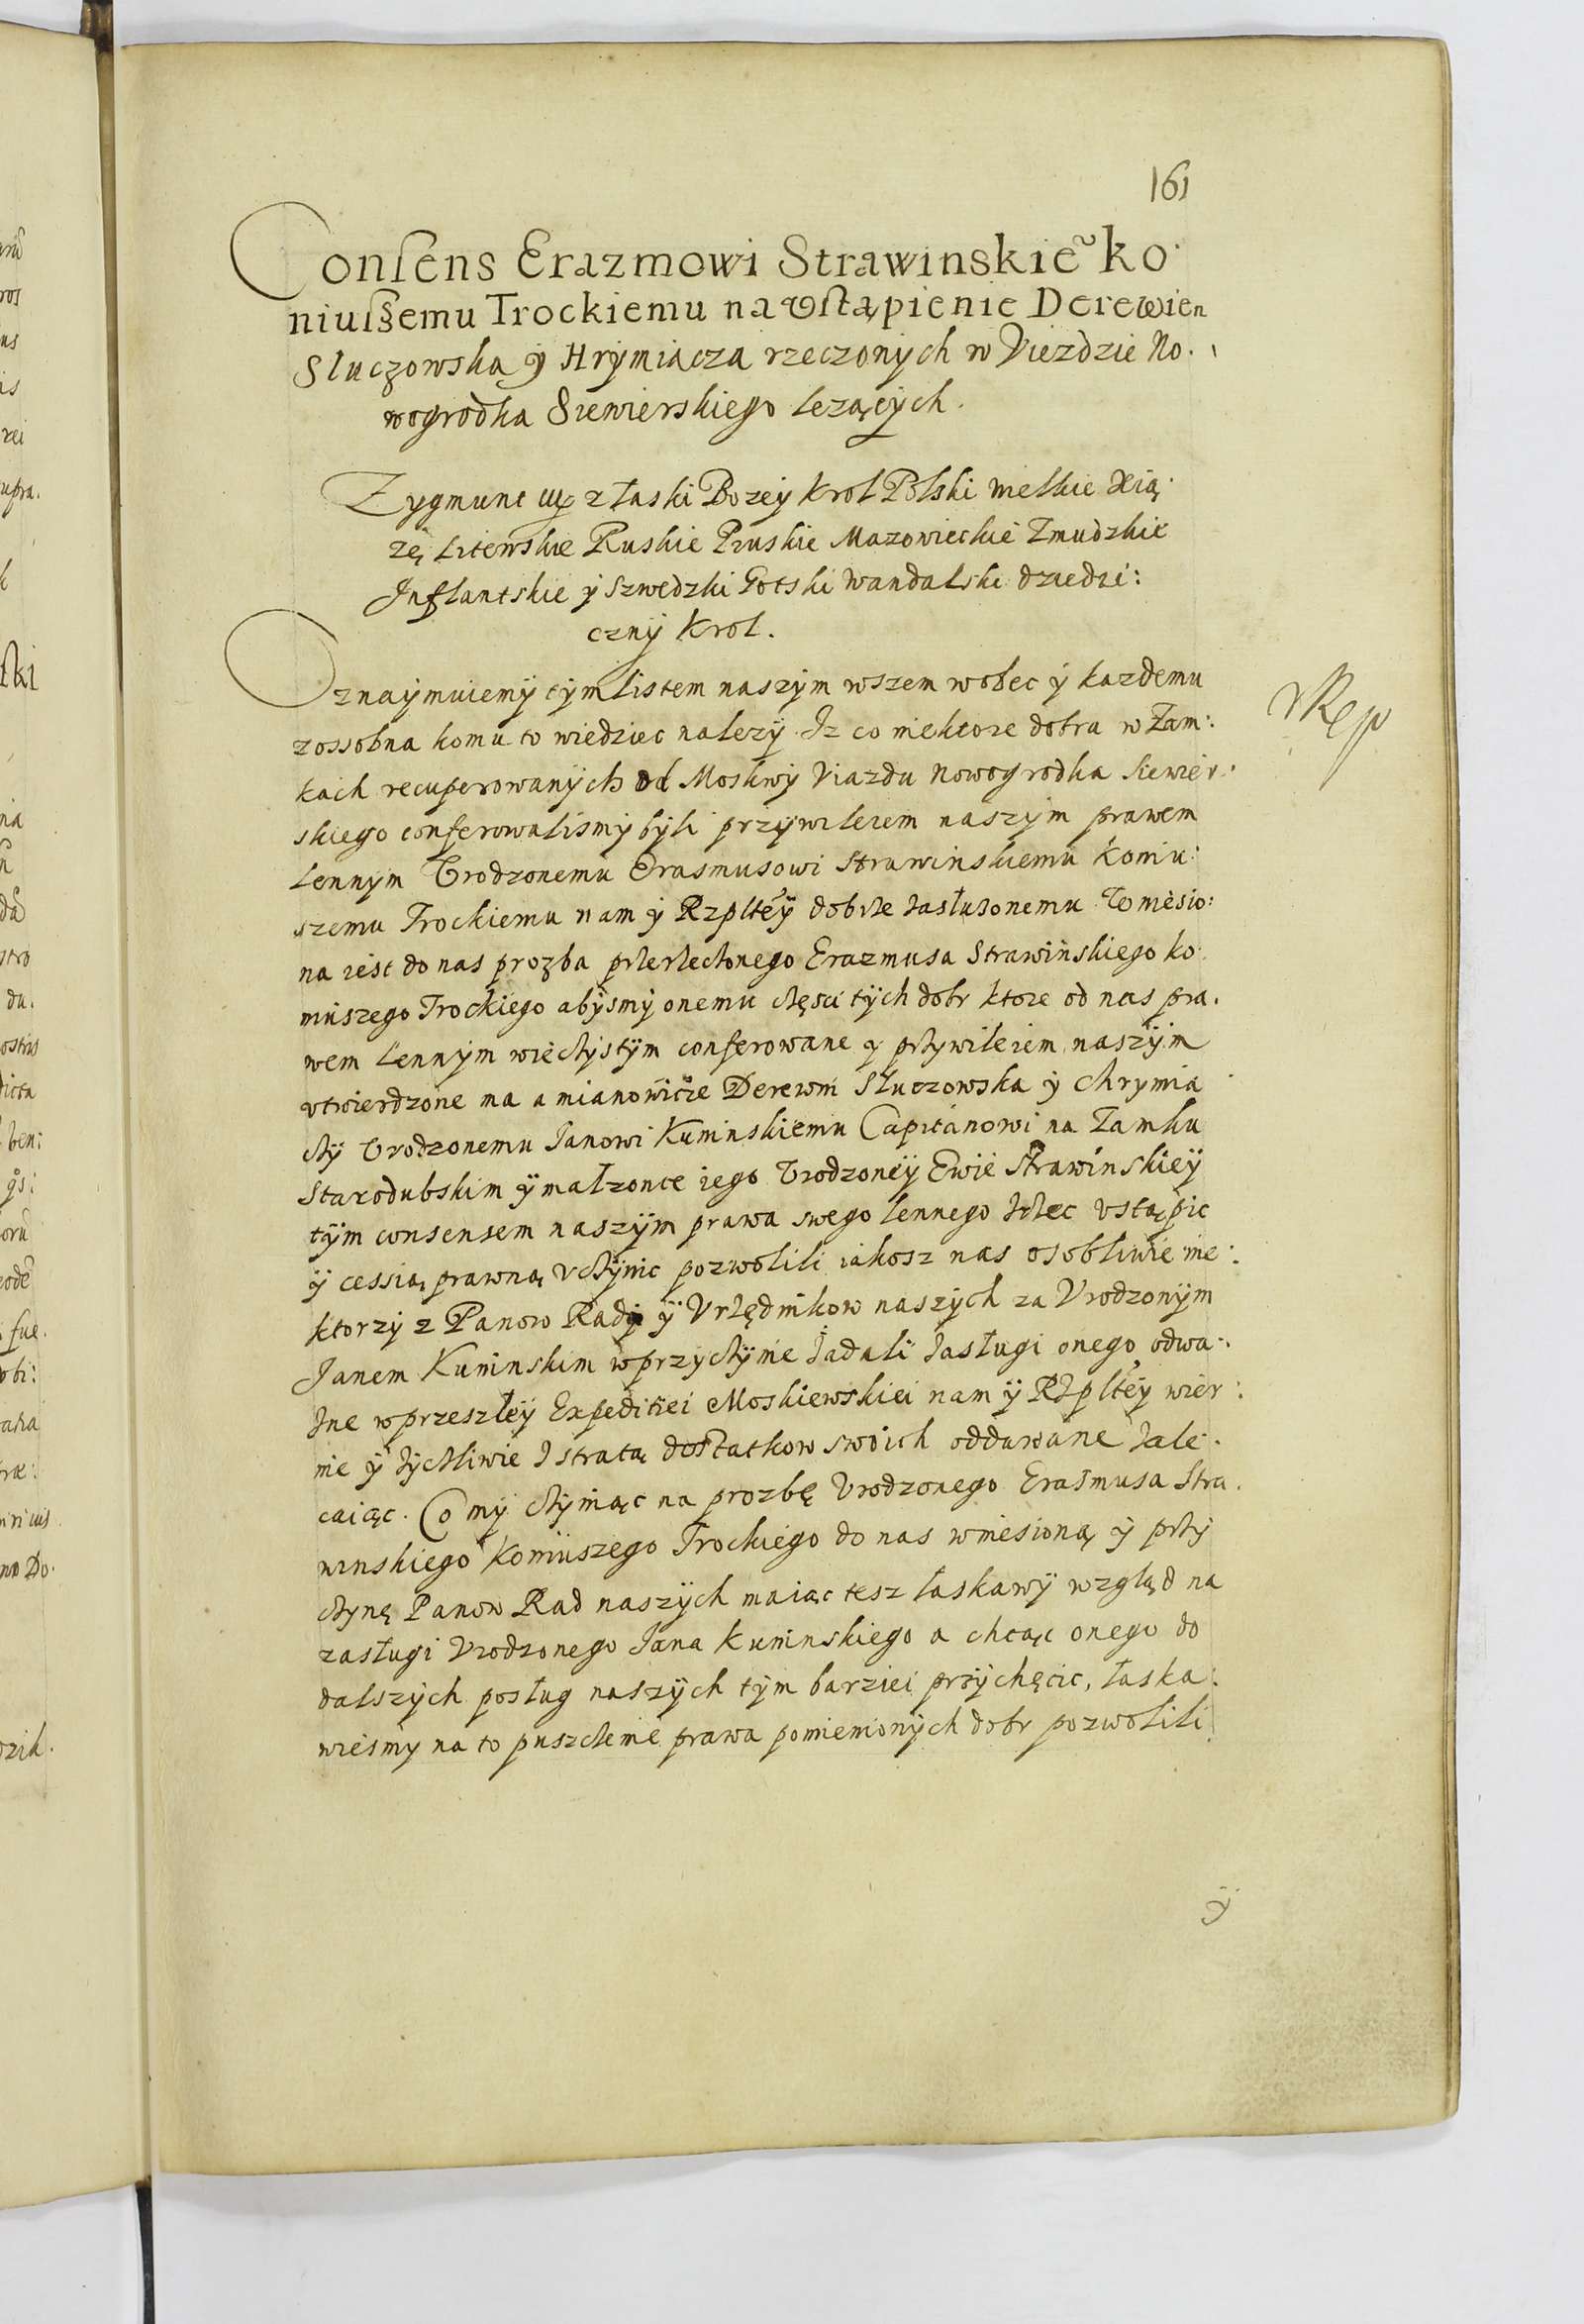 161
Consens Erazmowi Strawinskie͠ ko
niuszemu Trockiemu na Vstąpienie Derewien
Sluczowska ÿ Hrÿmiacza rzeczonÿch w Viezdzie No.
wogrodka Siewierskiego lezącÿch.
Zygmunt III z łaski Bozeÿ Krol Polski Wielkie Xią
zę Litewskie Ruskie Pruskie Mazowieckie Zmudzkie
Inflantskie ÿ Szwedzki Gotski Wandalski dziedzi:
cznÿ Krol.
Oznaÿmuiemÿ tÿm listem naszÿm wszem wobec ÿ kazdemu
zossobna komu to wiedziec nalezÿ Iz co niektore dobra w Zam:
kach recuperowanÿch od Moskwÿ Viazdu Nowogrodka Siewier
skiego conferowalismÿ bÿli przÿwileiem naszÿm prawem
Lennÿm Vrodzonemu Erasmusowi Strawinskiemu Koniu:
szemu Trockiemu nam ÿ Rzplteÿ dobrze zasłuzonemu. Wniesio:
na iest do nas prozba przerzeczonego Erazmusa Strawinskiego ko
niuszego Trockiego abÿsmÿ onemu częsci tÿch dobr ktore od nas pra.
wem Lennÿm wieczÿstÿm conferowane ÿ przÿwileiem naszÿm
vtwierdzone ma a mianowicie Derewni Słuczowska ÿ Chrymia
czÿ Vrodzonemu Janowi Kuninskiemu Capitanowi na Zamku
Starodubskim ÿ małzonce iego Vrodzoneÿ Ewie Strawinskieÿ
tÿm consensem naszÿm prawa swego lennego zrzec vstąpic
ÿ cessią prawną vczÿnic pozwolili iakosz nas osobliwie nie:
ktorzÿ z Panow Rad ÿ Vrzędnikow naszÿch za Vrodzonÿm
Janem Kuninskim wprzÿczÿnie zadali zasługi onego odwa:
zne wprzeszłeÿ Expeditiei Moskiewskiei nam ÿ Rzplteÿ wier:
nie ÿ zÿczliwie z stratą dostatkow swoich oddawane zale.
caiąc. Co mÿ czÿniąc na prozbę Vrodzonego Erasmusa Stra.
winskiego Koniuszego Trockiego do nas wniesioną ÿ przÿ
czÿnę Panow Rad naszÿch maiąc tesz łaskawÿ wzgląd na
zasługi Vrodzonego Jana Kuninskiego a chcąc onego do
dalszÿch posług naszÿch tÿm barziei przÿchęcic, łaska:
wiesmy na to puszczenie prawa pomienionÿch dobr pozwolili
ÿ